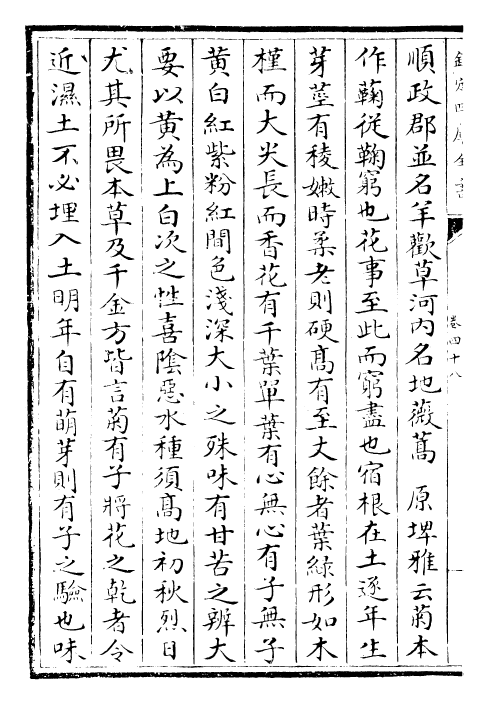 欽定四庫全書
卷四十八
順政郡並名羊歡草河内名地薇蒿　原埤雅云菊本
作蘜從鞠窮也花事至此而窮盡也宿根在土逐年生
芽莖有稜嫩時柔老則硬高有至丈餘者葉綠形如木
槿而大尖長而香花有千葉單葉有心無心有子無子
黄白紅紫粉紅間色淺深大小之殊味有甘苦之辨大
要以黄為上白次之性喜陰惡水種須高地初秋烈日
尤其所畏本草及千金方皆言菊有子將花之乾者令
近濕土不必埋入土明年自有萌芽則有子之驗也味